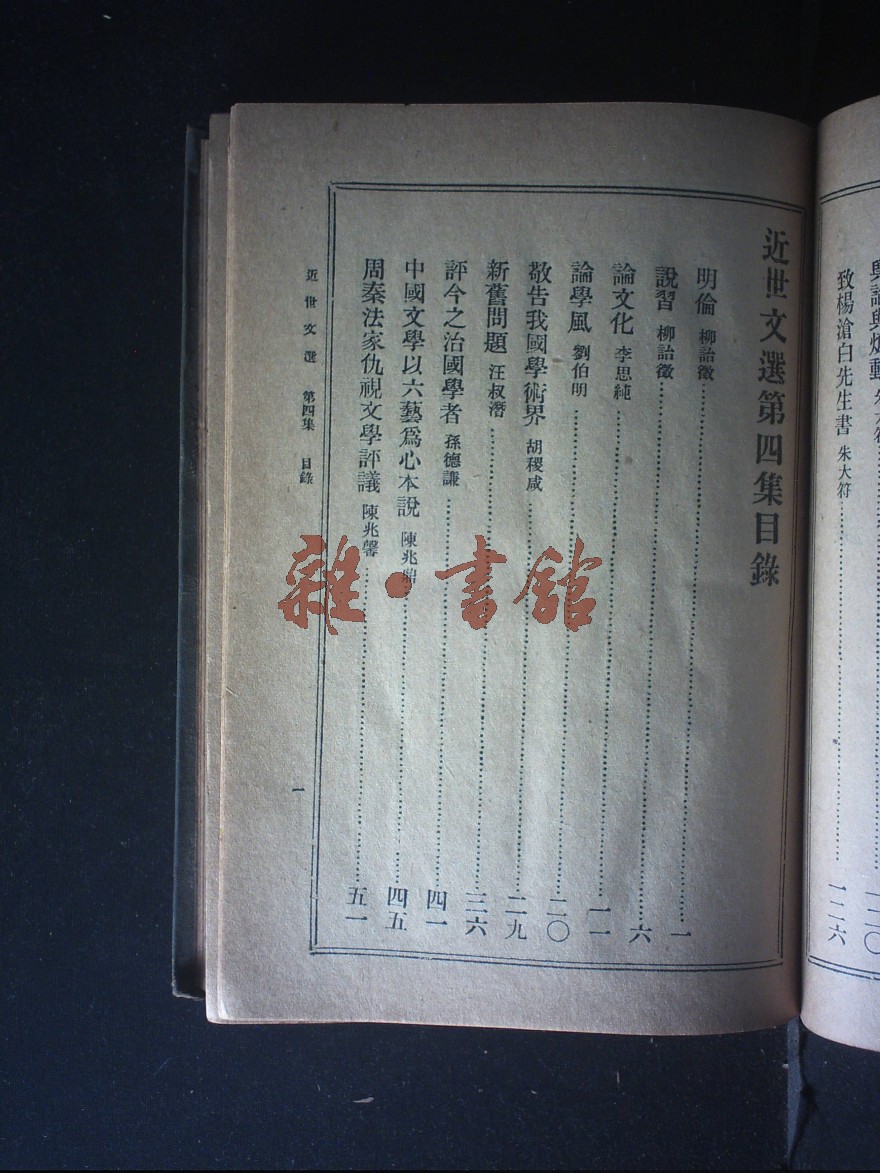 致楊滄白先生書 朱大符……一二六
近世文選第四集目錄
明倫 柳詒徵……一
說習 柳詒徵……六
論文化 李思純……一一
論學風 劉伯明……二〇
敬告我國學術界 胡稷咸……二九
新舊問題 汪叔潛……三六
評今之治國學者 孫德謙……四一
中國文學以六藝爲心本說 陳兆鼎……四五
周秦法家仇視文學評議 陳兆馨……五一
近世文選 第四集 目錄
一
雜·書館